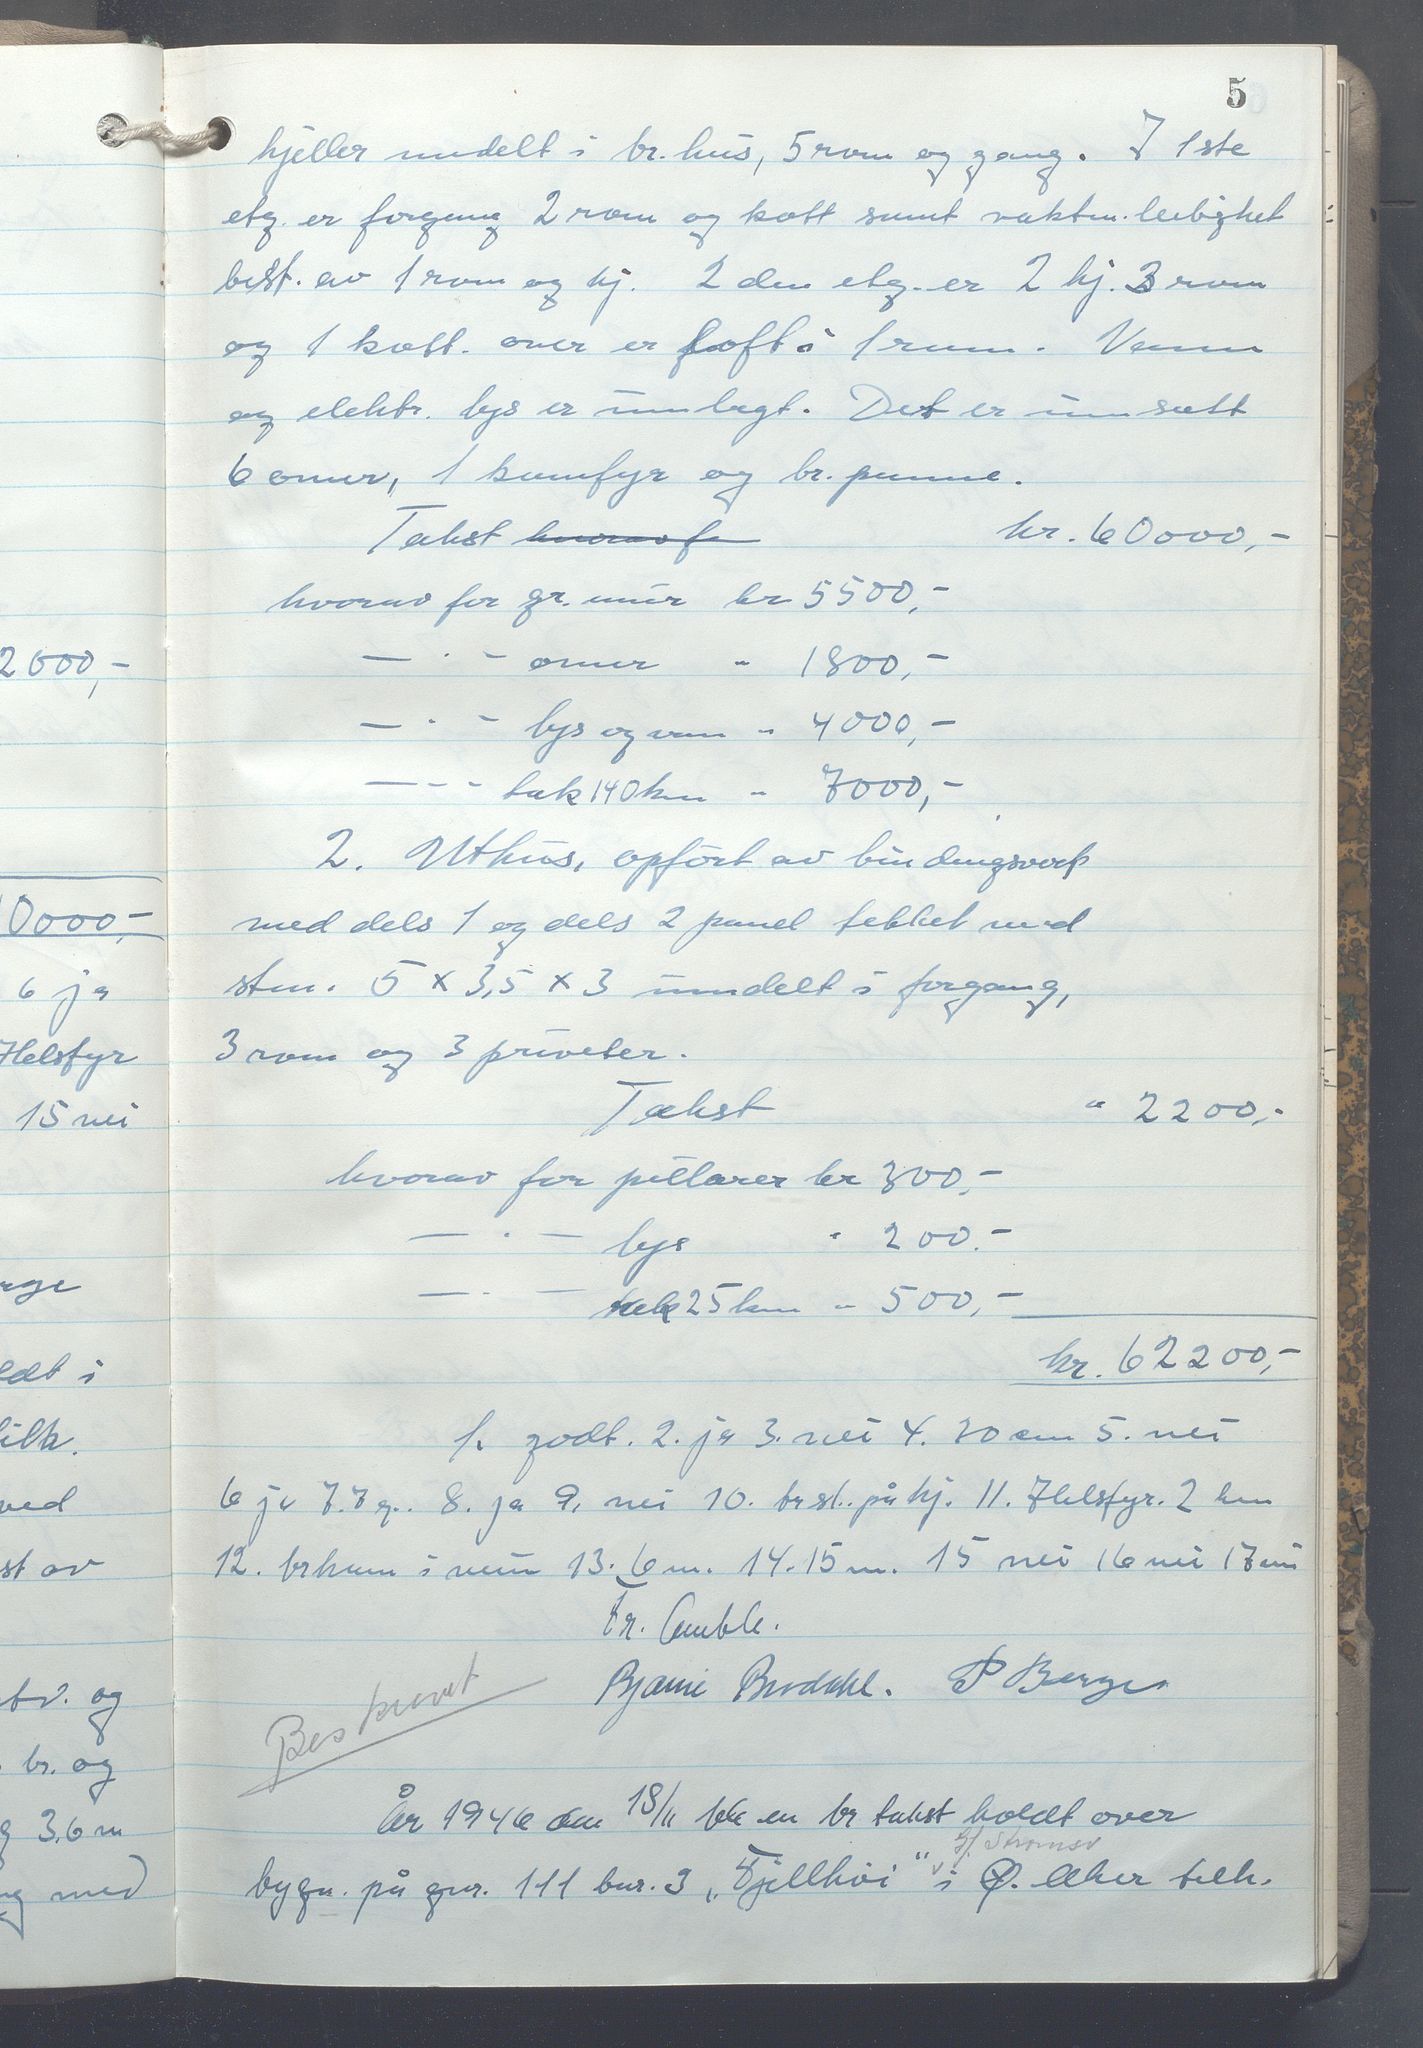 5
kjeller inndelt i br. hus, 5 rom og gang. I 1ste
etg. er forgang 2 rom og kott samt vaktm. leilighet
best. av 1 rom og kj. 2 den etg. er 2 kj. 3 rom
og 1 kott. over er loft i 1 rum. Vann
og elektr. lys er innlagt. Det er innsatt
6 ovner, 1 komfyr og br. panne.
Takst kr. 60000,-
hvorav for gr. mur kr 5500,-
— " — ovner " 1800,-
— " — lys og vann " 4000,-
— " — tak 140 km " 7000,-
2. Uthus, opført av bindingsverk
med dels 1 og dels 2 panel tekket med
sten. 5 x 3,5 x 3 inndelt i forgang,
3 rom og 3 priveter.
Takst " 2200,-
hvorav for pillarer kr 300,-
— " — lys " 200.-
— " — tak 25 km " 500,-
kr. 62200,-
1. godt. 2. ja 3. nei 4. 20 cm 5. nei
6 ja 7. 7 g. 8. ja 9. nei 10. br.st. på kj. 11. Helsfyr. 2 km
12. br kum i 13. 6 m. 14. 15 m. 15 nei 16 nei 17 nei
Fr.
Bjarne Brodahl. P Berge
Beskrevet
År 1946 den 18/11 ble en br takst holdt over
Strømsv
bygn. på gnr. 111 bnr. 3 „Fjellhøi" i Ø. Aker tilh.
2000,-
10000,-
6 ja
Helsfyr
15 nei
ved
st av
og
br. og
3,6 m
med